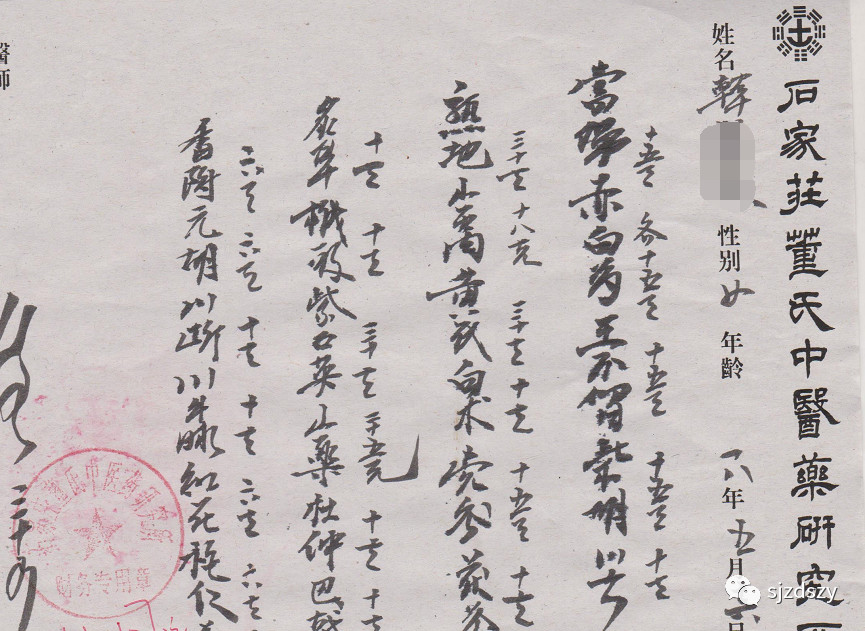 石家莊董氏中醫藥研究
姓名 韓
性別 女 年齡
一八年五月 日
十五克 各十五克 十五克 十五克 十克
當歸 赤白芍 王不留 柴胡 川芎
三十克 十八克 三十克 十克 十五克 十克
熟地 山萸 黄芪 白术 党参 茯苓
十克 十克 三十克 三十五克 十克 十克
炙草 枳殼 紫石英 山藥 杜仲 巴戟
六克 六克 十克 十克 六克 六克
香附 元胡 川断 川牛膝 红花 桃仁
三十付
醫師
财务专用章
sjzdszy